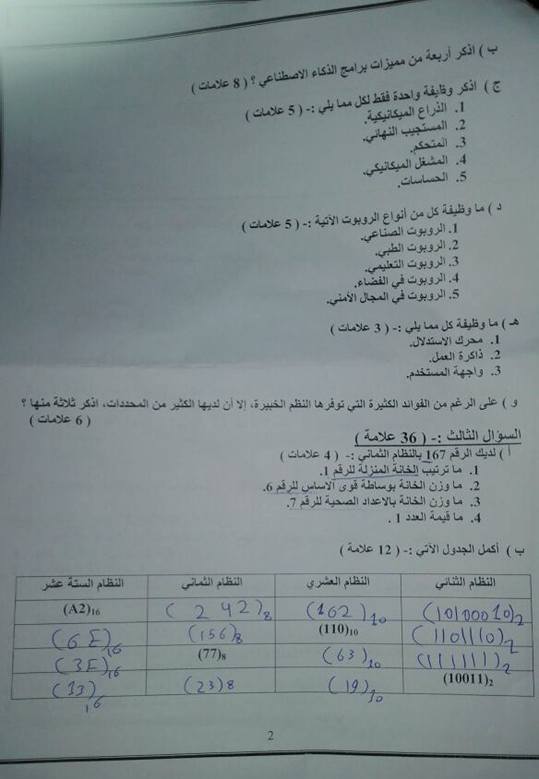 ب ) اذكر أربعة من مميزات برامج الذكاء الاصطناعي ؟ ( 8 علامات )
ج ) اذكر وظيفة واحدة فقط لكل مما يلي :- ( 5 علامات )
1. الذراع الميكانيكية.
2. المستجيب النهائي.
3. المتحكم.
4. المشغل الميكانيكي.
5. الحساسات.
د ) ما وظيفة كل من أنواع الروبوت الآتية :- ( 5 علامات )
1. الروبوت الصناعي.
2. الروبوت الطبي.
3. الروبوت التعليمي.
4. الروبوت في الفضاء.
5. الروبوت في المجال الأمني.
هـ ) ما وظيفة كل مما يلي :- ( 3 علامات )
1. محرك الاستدلال.
2. ذاكرة العمل.
3. واجهة المستخدم.
و ) على الرغم من الفوائد الكثيرة التي توفرها النظم الخبيرة، إلا أن لديها الكثير من المحددات، اذكر ثلاثة منها ؟
( 6 علامات )
السؤال الثالث :- ( 36 علامة )
أ ) لديك الرقم 167 بالنظام الثماني :- ( 4 علامات )
1. ما ترتيب الخانة المنزلة للرقم 1.
2. ما وزن الخانة بوساطة قوى الاساس للرقم 6.
3. ما وزن الخانة بالاعداد الصحية للرقم 7.
4. ما قيمة العدد 1 .
ب ) أكمل الجدول الآتي :- ( 12 علامة )
النظام الثنائي النظام العشري النظام الثماني النظام الستة عشر
(10100010)2 (162)10 (242)8 (A2)16
(1101110)2 (110)10 (156)8 (6E)16
(111111)2 (63)10 (77)8 (3E)16
(10011)2 (19)10 (23)8 (13)16
2